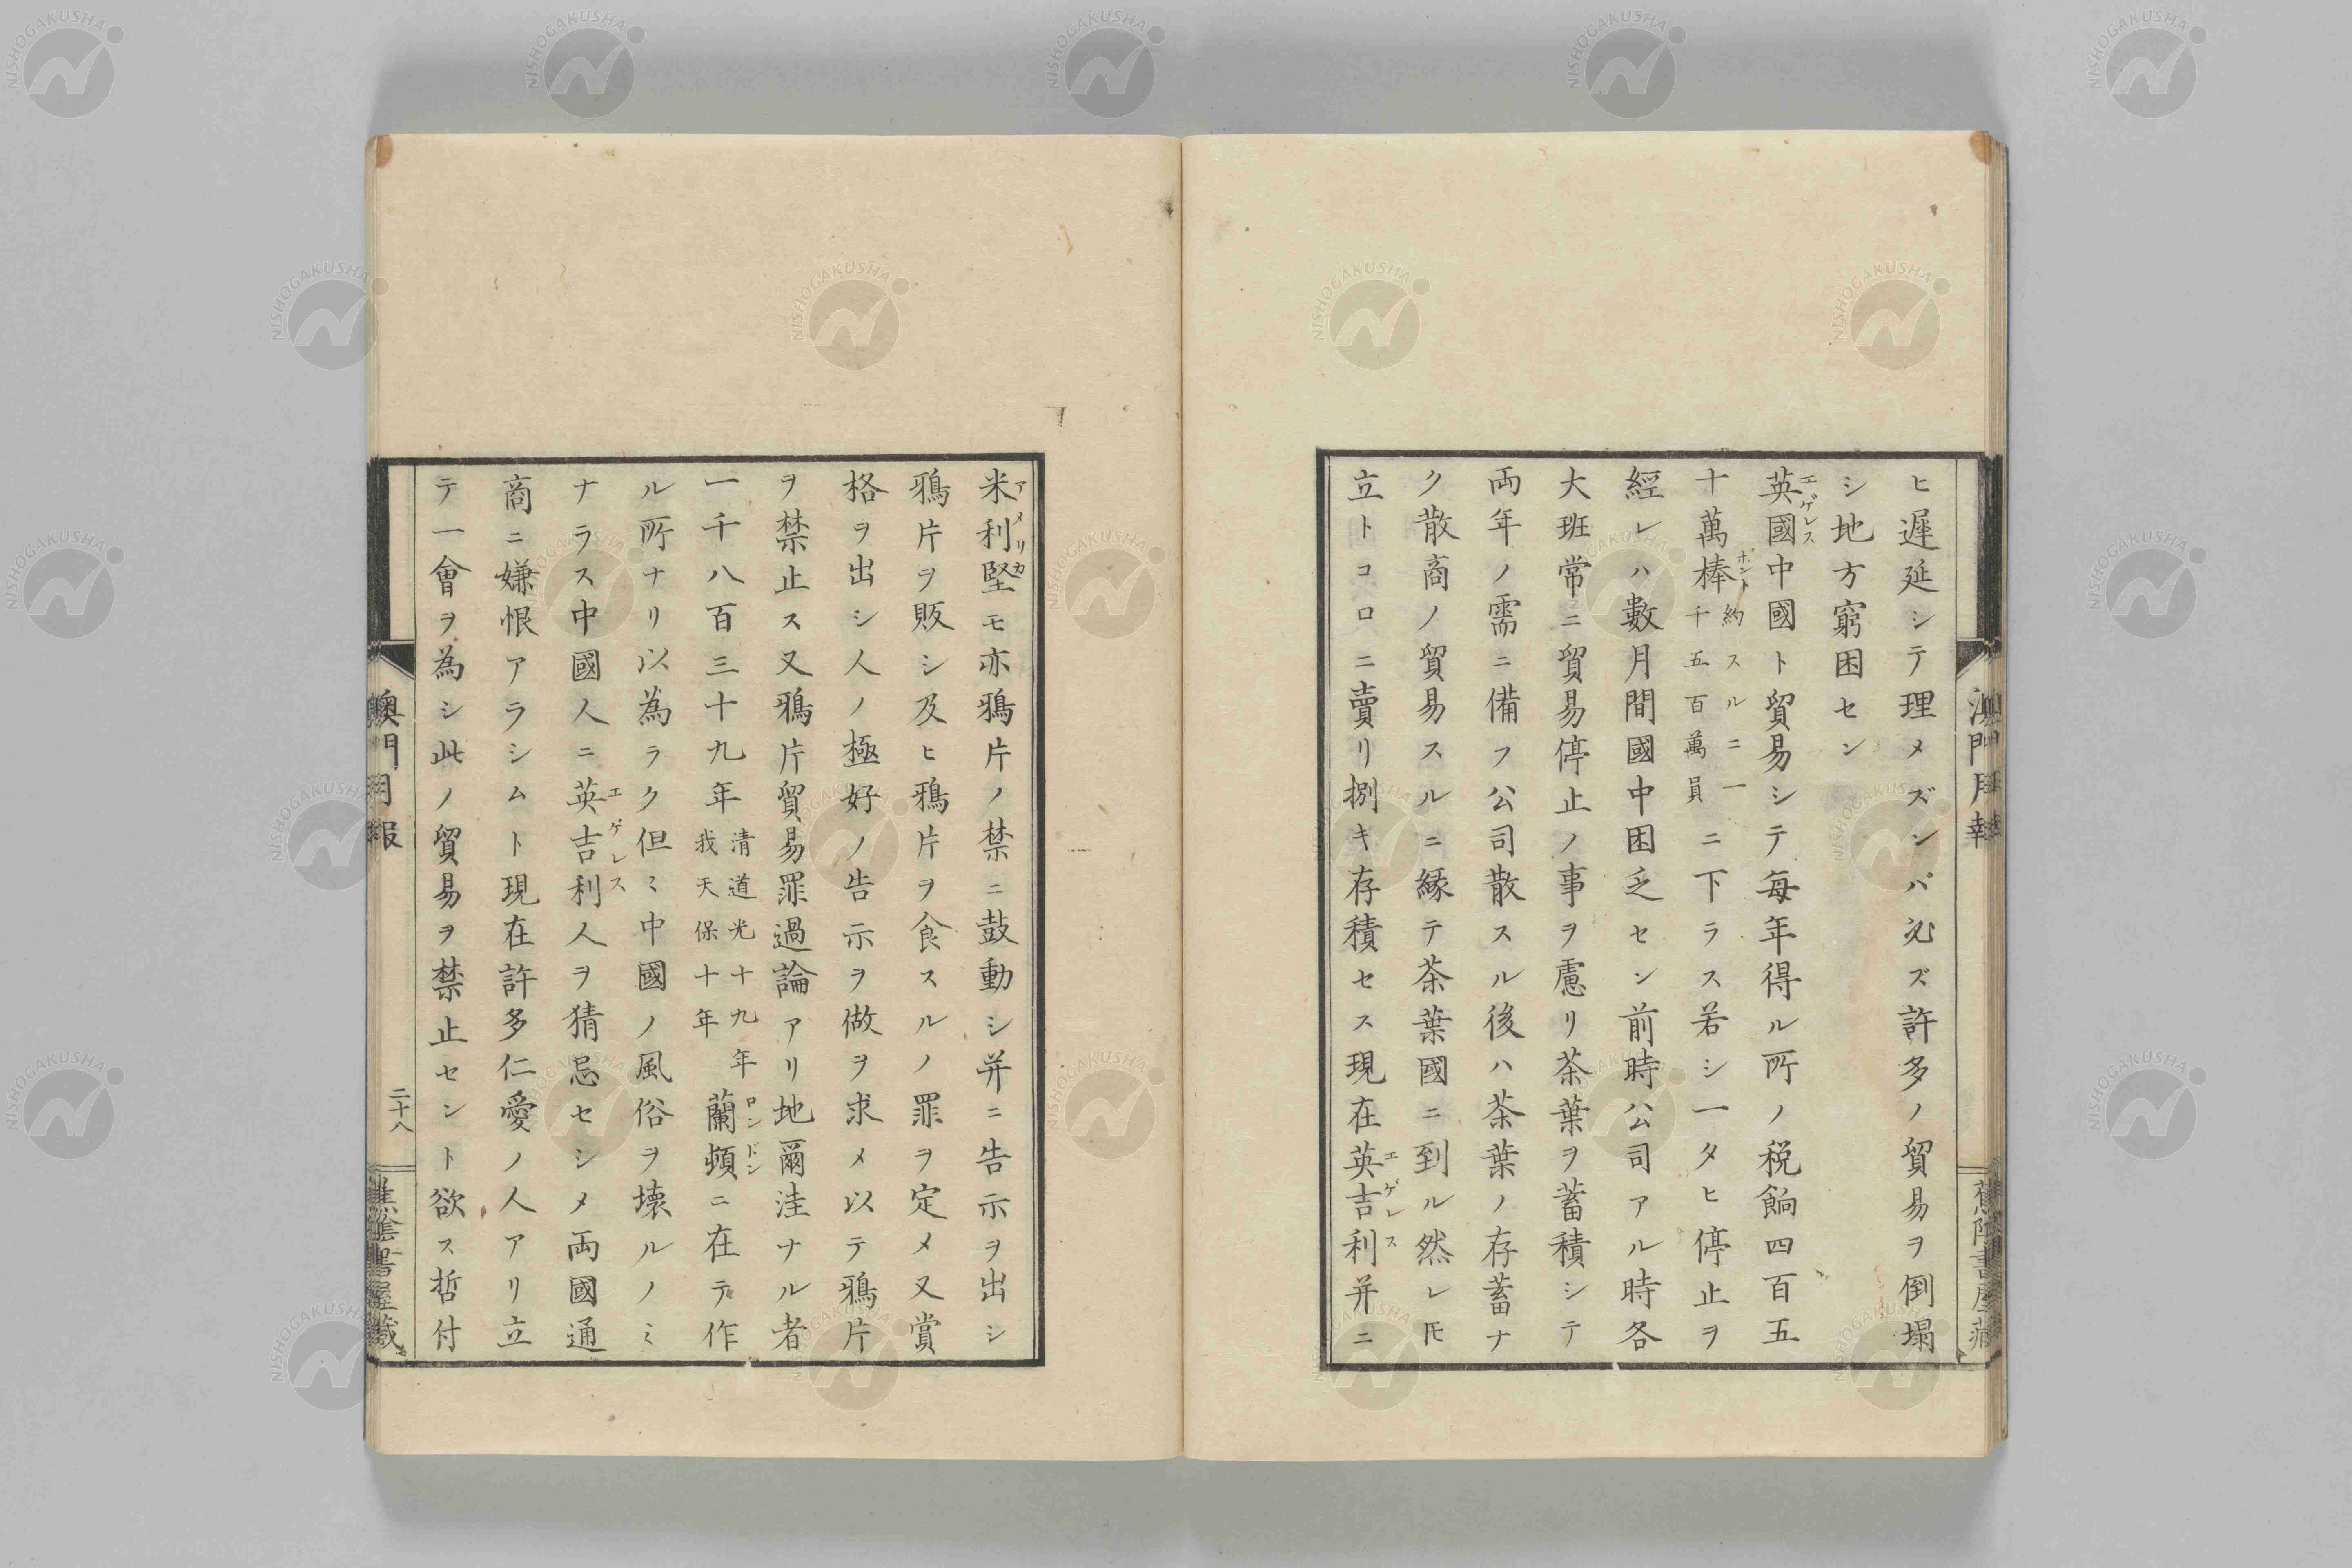 ヒ遲延シテ理メズンバ必ズ許多ノ貿易ヲ倒塌
シ地方窮困セン
英國中國ト貿易シテ毎年得ル所ノ税餉四百五
エゲレス
十萬棒約スルニ一千五百萬員ニ下ラス若シ一タヒ停止ヲ
ポント
經レハ數月間國中困乏セン前時公司アル時各
大班常ニ貿易停止ノ事ヲ慮リ茶葉ヲ蓄積シテ
両年ノ需ニ備フ公司散スル後ハ茶葉ノ存蓄ナ
ク散商ノ貿易スルニ縁テ茶葉國ニ到ル然レ𪜈
立トコロニ賣リ捌キ存積セス現在英吉利并ニ
エゲレス
米利堅モ亦鴉片ノ禁ニ鼓動シ并ニ告示ヲ出シ
アメリカ
鴉片ヲ販シ及ヒ鴉片ヲ食スルノ罪ヲ定メ又賞
格ヲ出シ人ノ極好ノ告示ヲ做ヲ求メ以テ鴉片
ヲ禁止ス又鴉片貿易罪過論アリ地爾洼ナル者
一千八百三十九年清道光十九年我天保十年蘭頓ニ在テ作
ロンドン
ル所ナリ以為ラク但ミ中國ノ風俗ヲ壊ルノミ
ナラス中國人ニ英吉利人ヲ猜忌セシメ両國通
エゲレス
商ニ嫌恨アラシムト現在許多仁愛ノ人アリ立
テ一會ヲ為シ此ノ貿易ヲ禁止セント欲ス哲付
澳門月報
二十八
蕉陰書屋藏
NISHOGAKUSHA